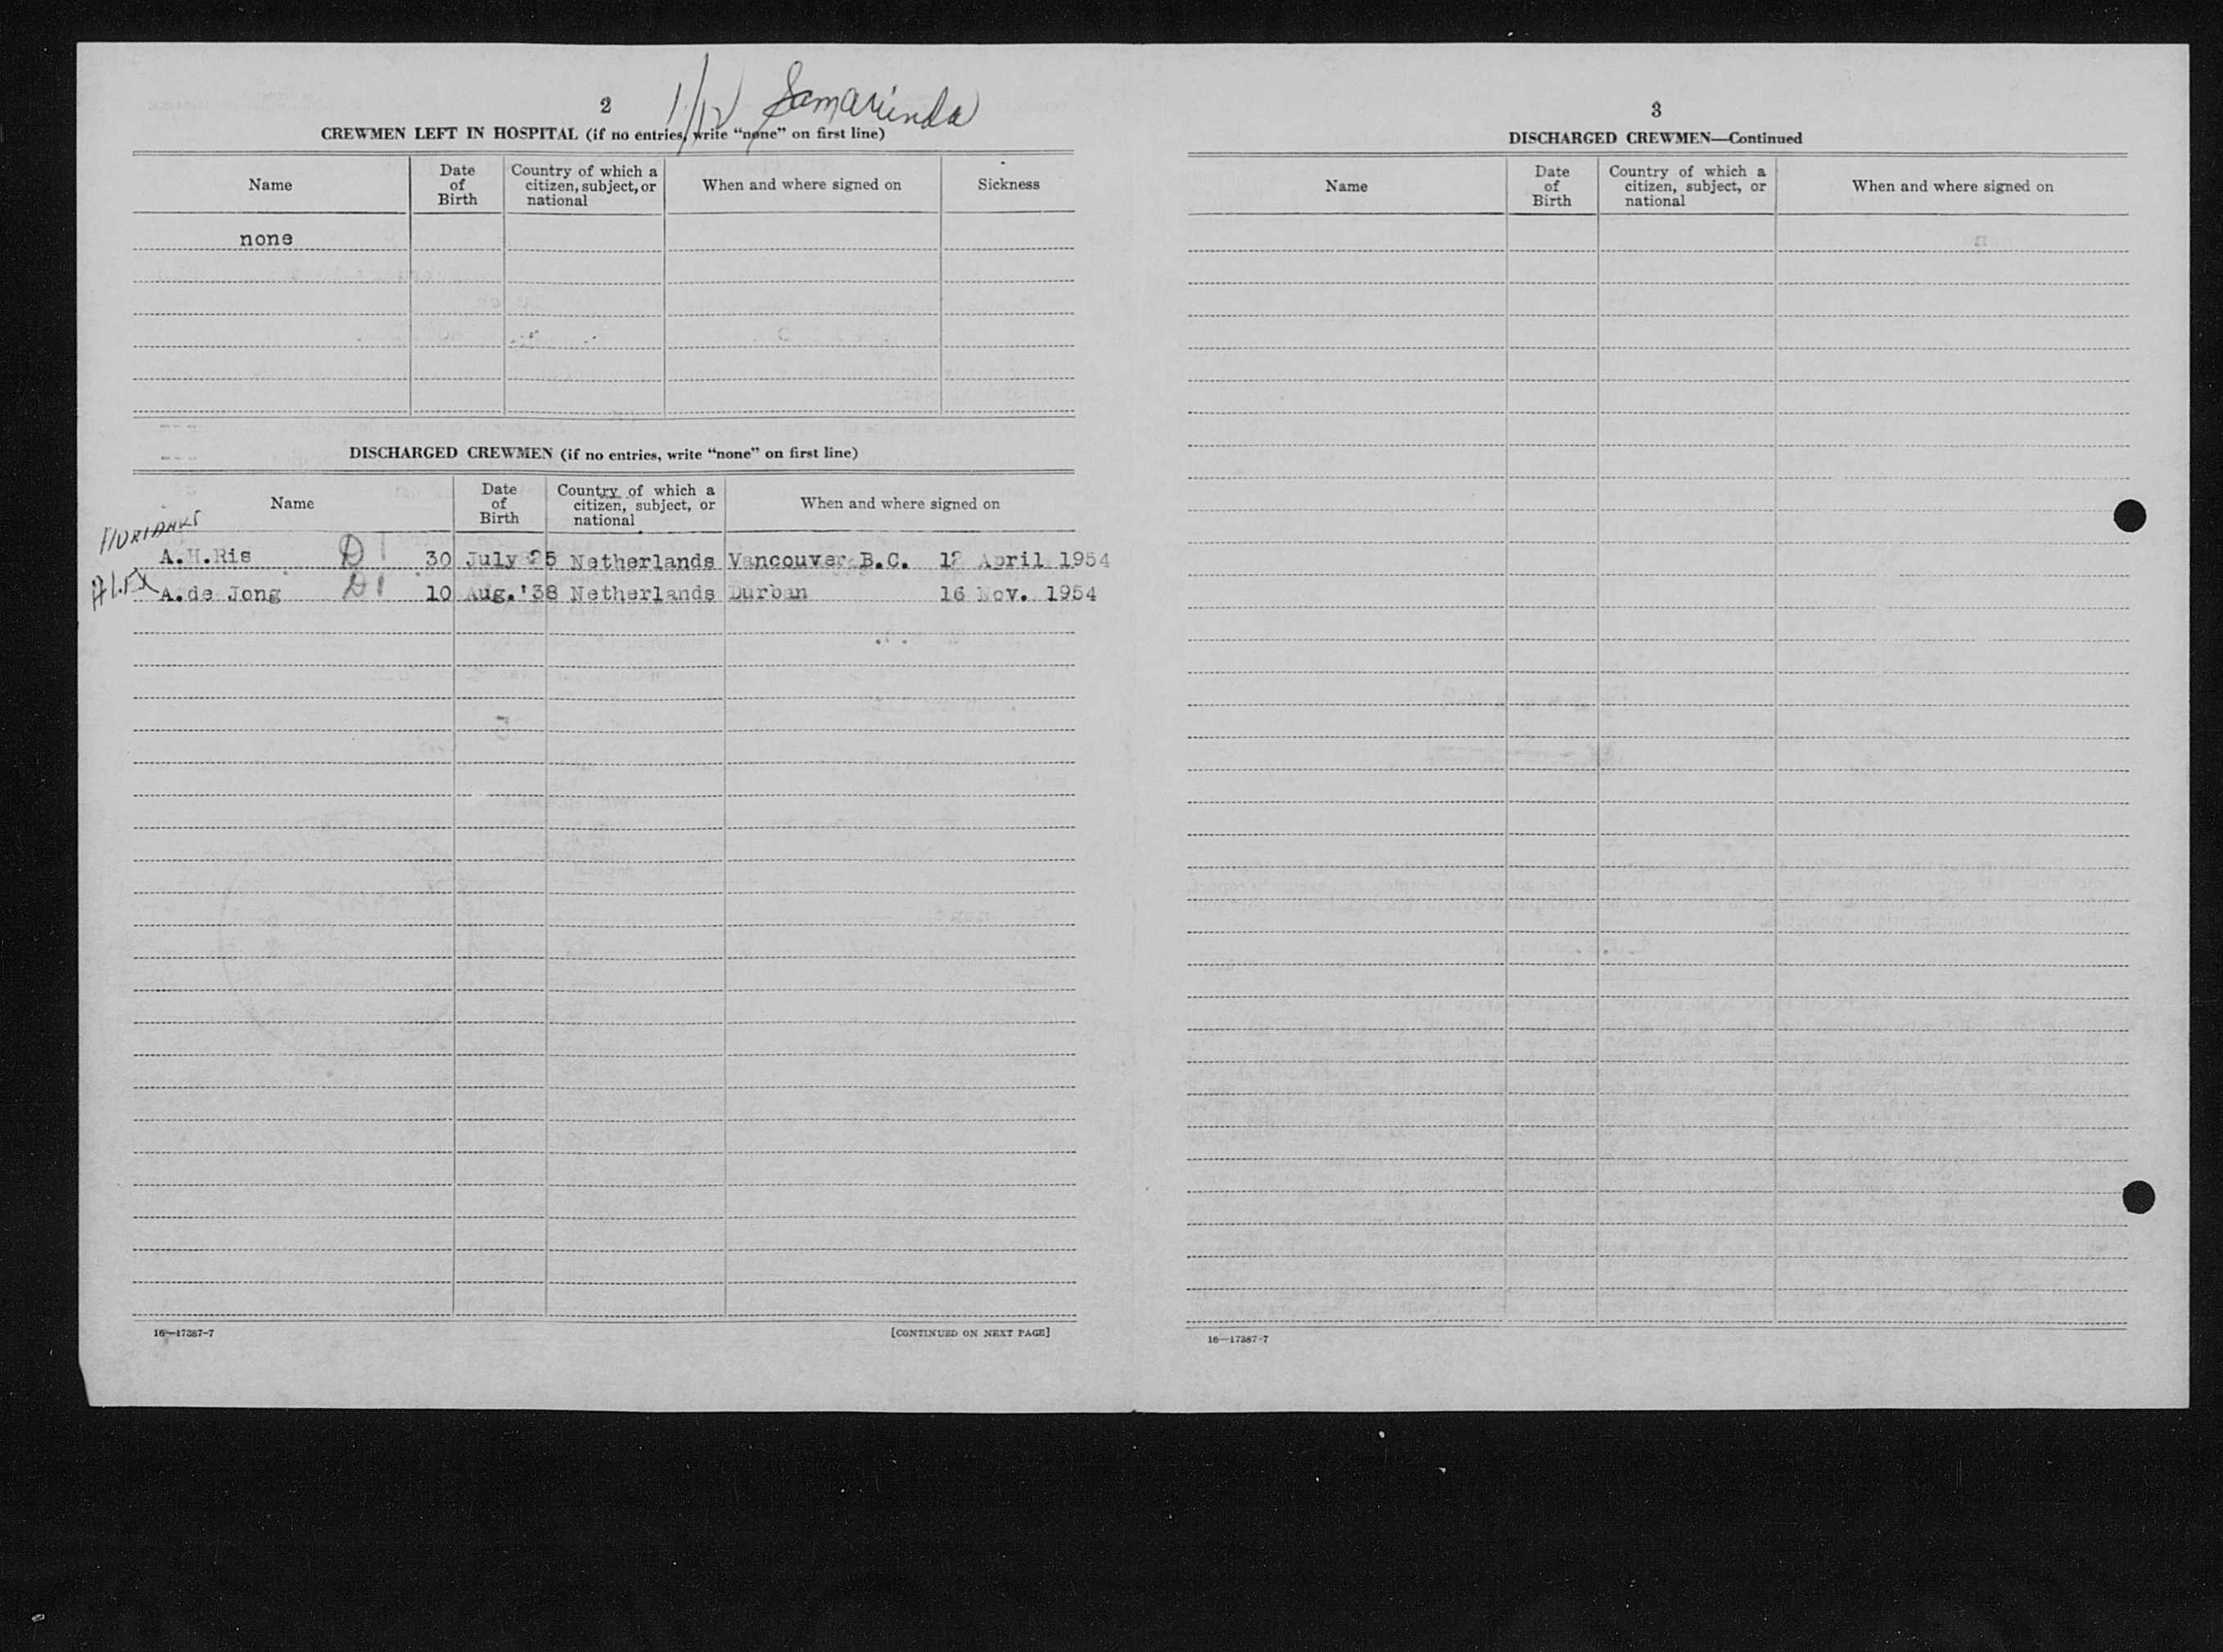 2
1/12 Samarinda
CREWMEN LEFT IN HOSPITAL (if no entries, write “none” on first line)
Name
Date of Birth
Country of which a citizen, subject, or national
When and where signed on
Sickness
none
DISCHARGED CREWMEN (if no entries, write “none” on first line)
Name
Date of Birth
Country of which a citizen, subject, or national
When and where signed on
A.H.Ris D1 30 July 25 Netherlands Vancouver B.C. 12 April 1954
ALEX A.de Jong D1 10 Aug.'38 Netherlands Durban 16 Nov. 1954
16—17387-7
[CONTINUED ON NEXT PAGE]
3
DISCHARGED CREWMEN—Continued
Name
Date of Birth
Country of which a citizen, subject, or national
When and where signed on
16—17387-7